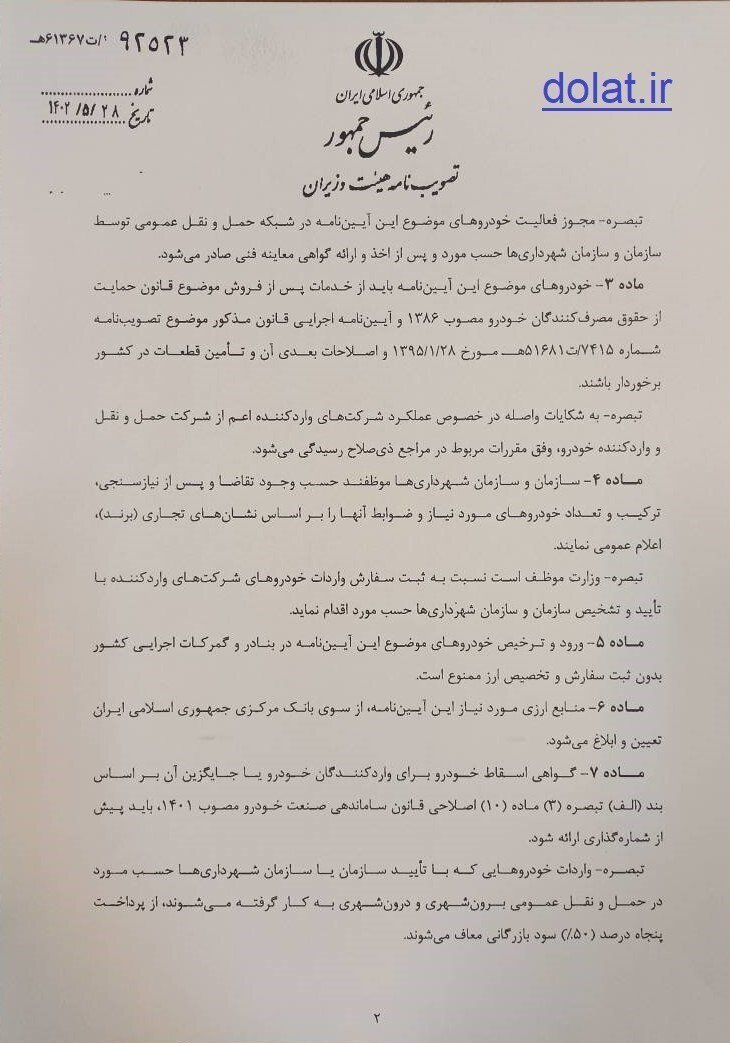 ۹۲۵۲۳ /ت۶۱۳۶۷هـ
dolat.ir
جمهوری اسلامی ایران
رئیس جمهور
تصویب نامه هیئت وزیران
شماره
تاریخ ۱۴۰۲/۵/۲۸
تبصره- مجوز فعالیت خودروهای موضوع این آیین‌نامه در شبکه حمل و نقل عمومی توسط
سازمان و سازمان شهرداری‌ها حسب مورد و پس از اخذ و ارائه گواهی معاینه فنی صادر می‌شود.
ماده ۳- خودروهای موضوع این آیین‌نامه باید از خدمات پس از فروش موضوع قانون حمایت
از حقوق مصرف‌کنندگان خودرو مصوب ۱۳۸۶ و آیین‌نامه اجرایی قانون مذکور موضوع تصویب‌نامه
شماره ۷۴۱۵/ت۵۱۶۸۱هـ مورخ ۱۳۹۵/۱/۲۸ و اصلاحات بعدی آن و تأمین قطعات در کشور
برخوردار باشند.
تبصره- به شکایات واصله در خصوص عملکرد شرکت‌های واردکننده اعم از شرکت حمل و نقل
و واردکننده خودرو، وفق مقررات مربوط در مراجع ذی‌صلاح رسیدگی می‌شود.
ماده ۴- سازمان و سازمان شهرداری‌ها موظفند حسب وجود تقاضا و پس از نیازسنجی،
ترکیب و تعداد خودروهای مورد نیاز و ضوابط آنها را بر اساس نشان‌های تجاری (برند)،
اعلام عمومی نمایند.
تبصره- وزارت موظف است نسبت به ثبت سفارش واردات خودروهای شرکت‌های واردکننده با
تأیید و تشخیص سازمان و سازمان شهرداری‌ها حسب مورد اقدام نماید.
ماده ۵- ورود و ترخیص خودروهای موضوع این آیین‌نامه در بنادر و گمرکات اجرایی کشور
بدون ثبت سفارش و تخصیص ارز ممنوع است.
ماده ۶- منابع ارزی مورد نیاز این آیین‌نامه، از سوی بانک مرکزی جمهوری اسلامی ایران
تعیین و ابلاغ می‌شود.
ماده ۷- گواهی اسقاط خودرو برای واردکنندگان خودرو یا جایگزین آن بر اساس
بند (الف) تبصره (۳) ماده (۱۰) اصلاحی قانون ساماندهی صنعت خودرو مصوب ۱۴۰۱، باید پیش
از شماره‌گذاری ارائه شود.
تبصره- واردات خودروهایی که با تأیید سازمان یا سازمان شهرداری‌ها حسب مورد
در حمل و نقل عمومی برون‌شهری و درون‌شهری به کار گرفته می‌شوند، از پرداخت
پنجاه درصد (۵۰٪) سود بازرگانی معاف می‌شوند.
۲